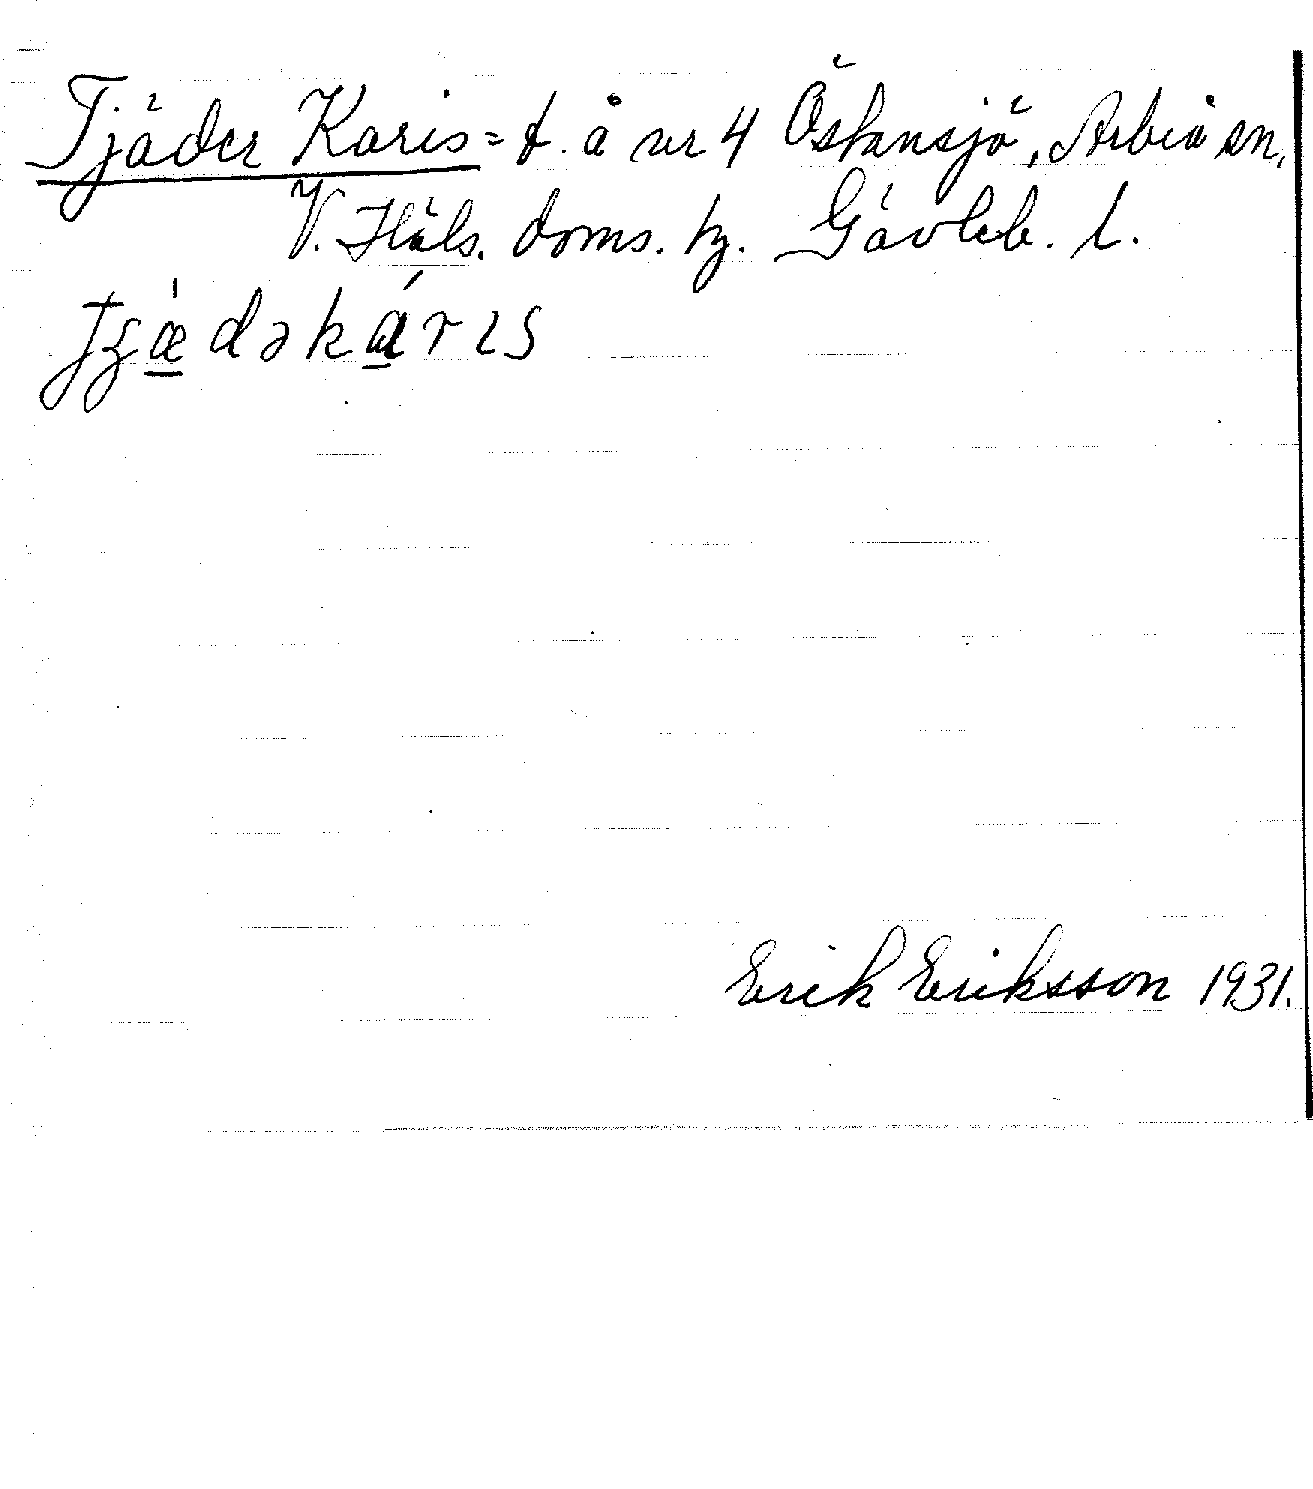 Tjäder Karis = t. å nr 4 Östansjö, Arbrå sn,
V. Häls. doms. tg. Gävleb. l.
Erik Eriksson 1931.